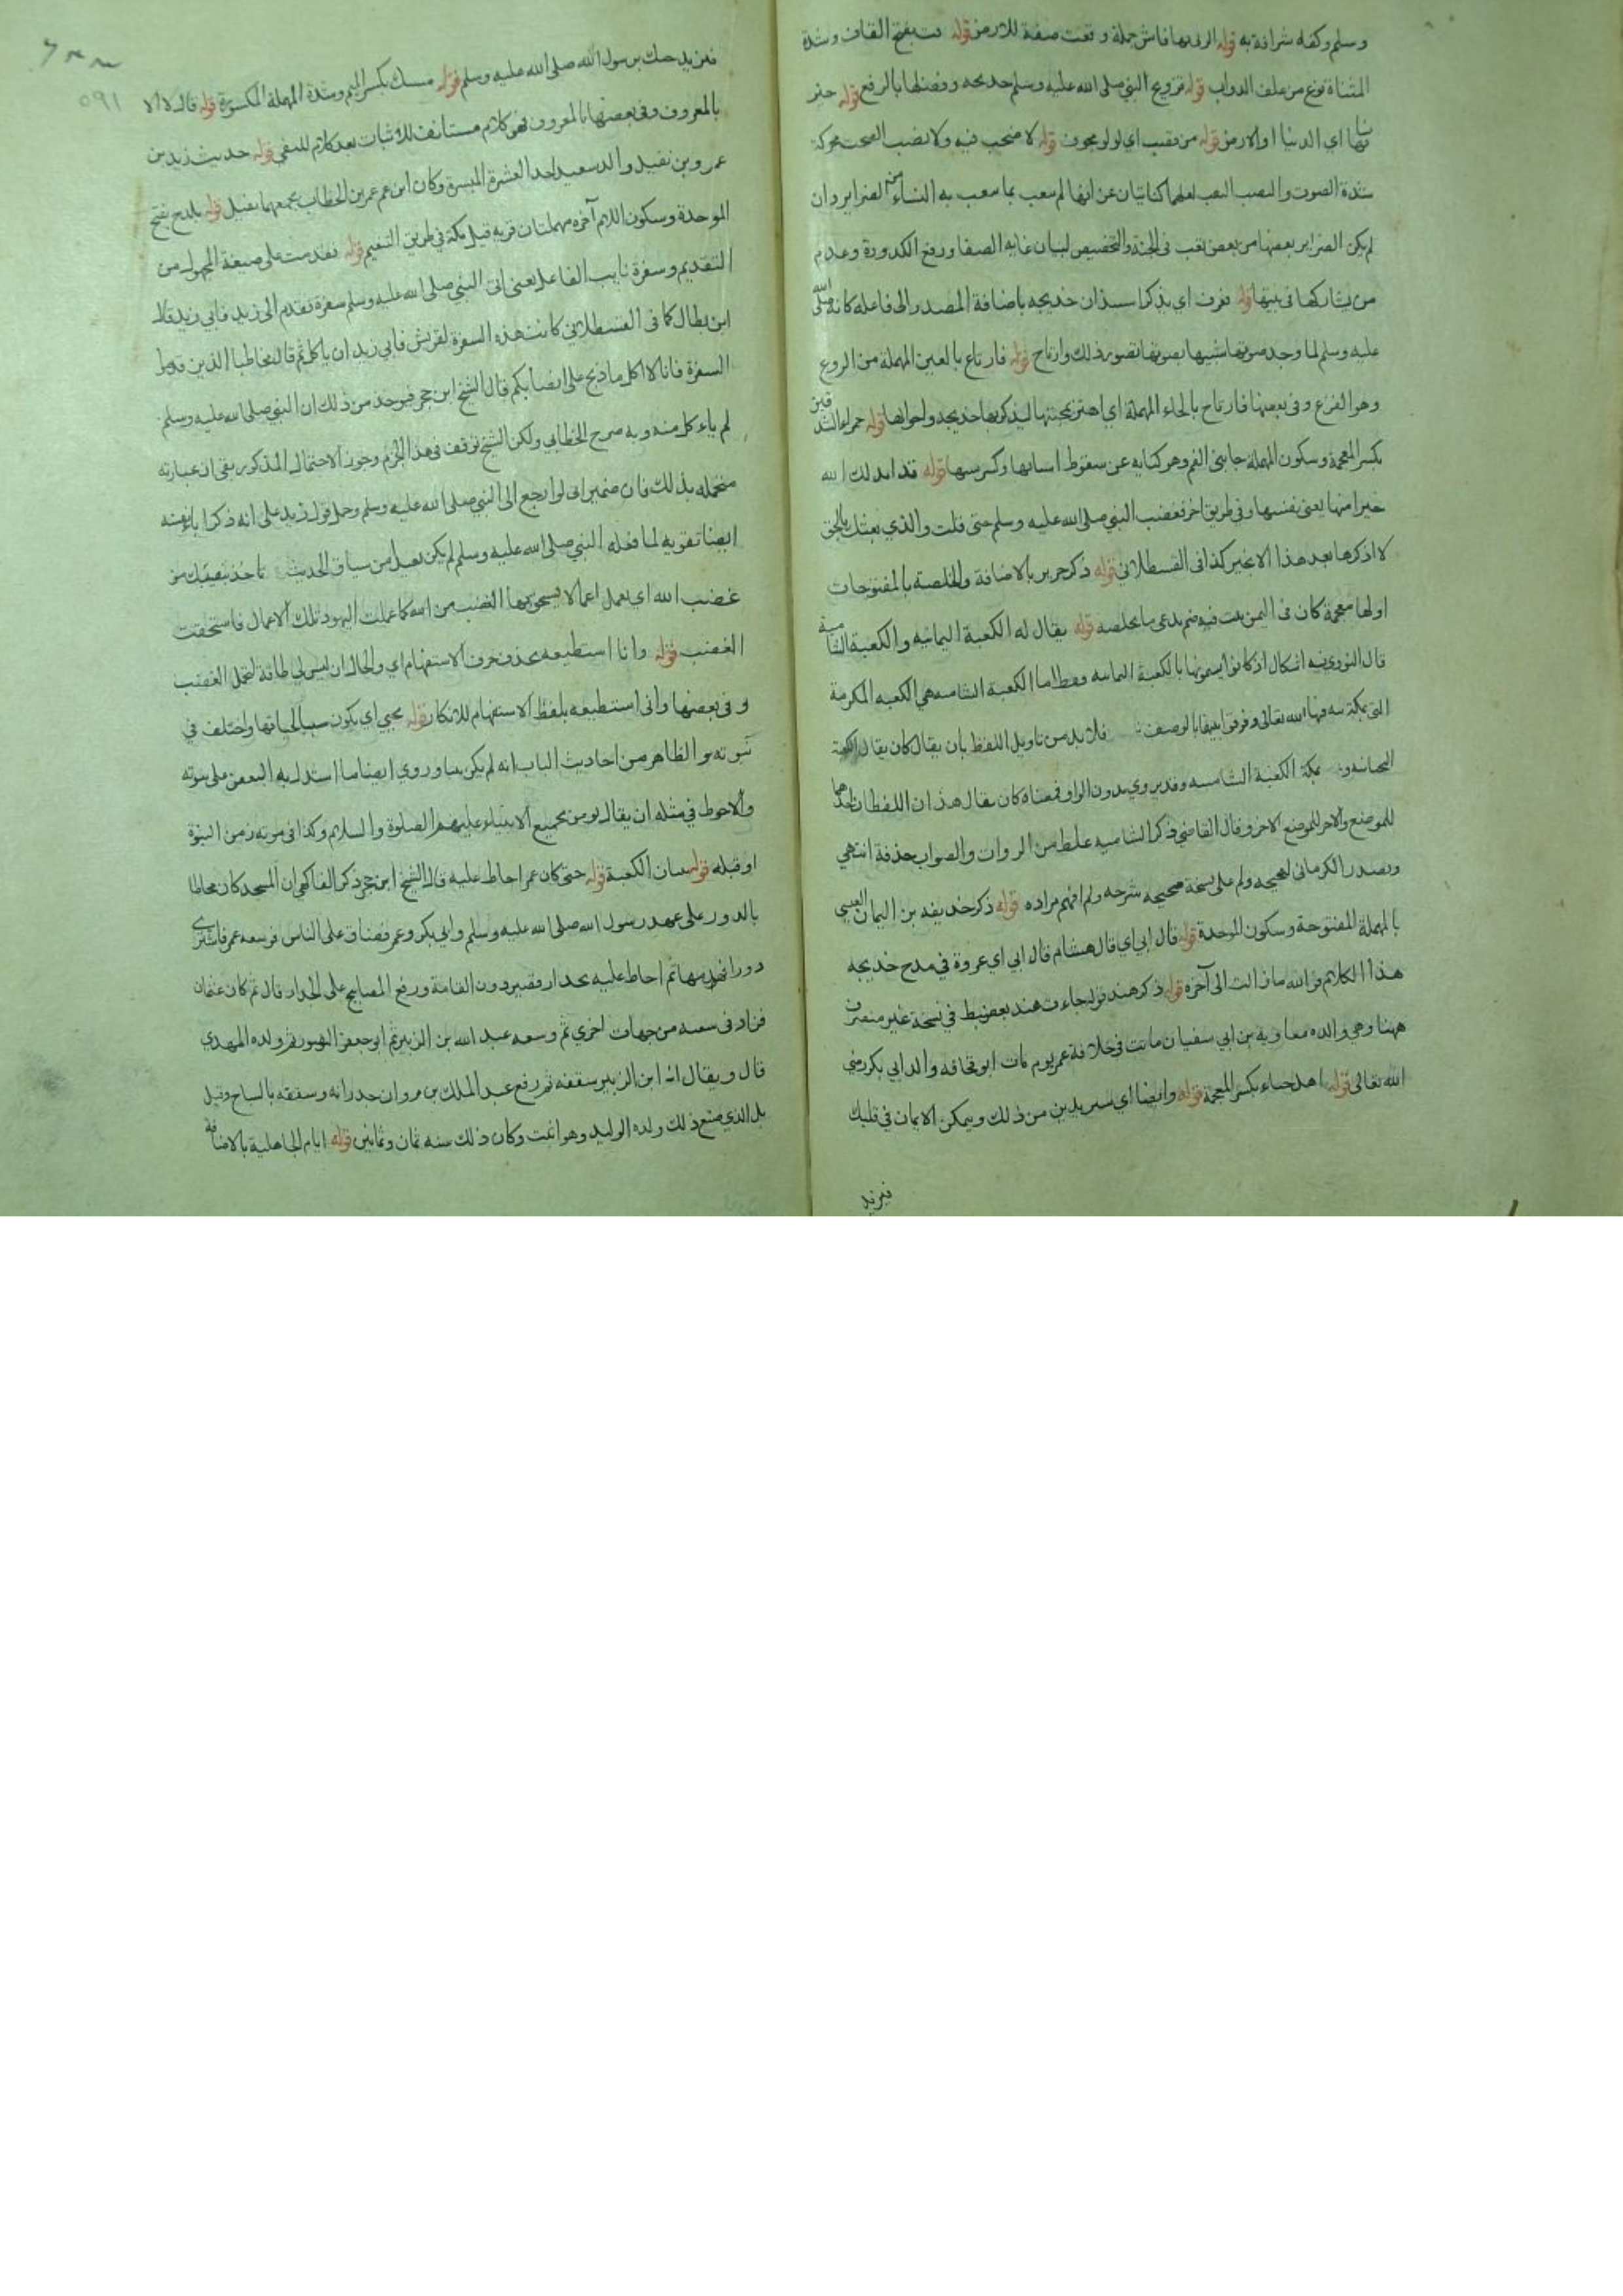 وسلم وكفاه شرافة به قوله الربى بها فاش جملة وقعت صفة للارض قوله قت بفتح القاف وشدة
المثناة نوع من علف الدواب قوله تزويج النبي صلى الله عليه وسلم خديجه وفضلها بالرفع قوله خير
نسائها اي الدنيا او الارض قوله من قصب اي لولو مجوف قوله لا صخب فيه ولا نصب الصخب محركة
شدة الصوت والنصب التعب لعلهما كنايتان عن انها لم تتعب بما تتعب به النساء من الضراير وان
لم يكن الضراير بعضها من بعض تعب في الجنة والتخصيص لبيان غاية الصفا ورفع الكدورة وعدم
من يشاركها في بيتها قوله فعرف اي بذكر استيذان خديجه باضافة المصدر الى فاعله كانه صلى الله
عليه وسلم لما وجد صوتها شبيها بصوتها تصور ذلك وارتاح قوله فارتاع بالعين المهملة من الروع
وهو الفزع وفي بعضها فارتاح بالحاء المهملة اي اهتز بمجيئها ليذكر بها خديجه واحوالها قوله حمراء الشدقين
بكسر المعجمة وسكون المهملة جانبي الفم وهو كنايه عن سقوط اسنانها وكبر سنها قوله قد ابدلك الله
خيرا منها يعني نفسها وفي طريق اخر فغضب النبي صلى الله عليه وسلم حتى قلت والذي بعثك بالحق
لا اذكرها بعد هذا الا بخير كذا في القسطلاني قوله ذكر جرير بالاضافة والخلصة بالمفتوحات
اولها معجمة كان في اليمن بيت فيه صنم يدعى بالخلصه قوله يقال له الكعبة اليمانيه والكعبة الشامية
قال النووي فيه اشكال اذ كانوا يسمونها بالكعبة اليمانيه فقط اما الكعبة الشاميه هي الكعبه المكرمة
التي بمكة شرفها الله تعالى وفرقوا بينها بالوصف فلا بد من تاويل اللفظ بان يقال كان يقال الكعبة
اليمانيه و بمكة الكعبة الشاميه وقد يروى بدون الواو فمعناه كان يقال هذان اللفظان احدهما
للموضع والاخر للموضع الاخر وقال القاضي ذكر الشاميه غلط من الروات والصواب حذفة انتهى
وتصدر الكرماني لصحيحه ولم على نسخة صحيحه شرحه ولم افهم مراده قوله ذكر حذيفه بن اليمان العبسي
بالمهملة المفتوحة وسكون الموحدة قوله قال ابي اي قال هشام قال ابي اي عروة في مدح خديجه
هذا الكلام فوالله ما زالت الى آخره قوله ذكر هند قوله جاءت هند بعض ضبط في نسخة غير منصرف
ههنا وهي والده معاوية بن ابي سفيان ماتت في خلافة عمر يوم مات ابو قحافه والد ابي بكر رضي
الله تعالى قوله اهل خباء بكسر المعجمة قوله وايضا اي ستزيدين من ذلك ويتمكن الايمان في قلبك
فيزيد
١٩٥
فيزيد حبك برسول الله صلى الله عليه وسلم قوله مسيك بكسر الميم وشدة المهملة المكسورة قوله قال لا الا
بالمعروف وفي بعضها بالمعروف فهو كلام مستانف للاثبات بعد كلام للنفي قوله حديث زيد بن
عمرو بن نفيل والد سعيد احد العشرة المبشرة وكان ابن عم عمر بن الخطاب يجمعهما نفيل قوله بلدح بفتح
الموحدة وسكون اللام آخره مهملتان قريه قبل مكة في طريق التنعيم قوله فقدمت على صيغة المجهول من
التقديم وسفرة نايب الفاعل يعني اتى النبي صلى الله عليه وسلم سفرة تقدم الى زيد فابى زيد قال
ابن بطال كما في القسطلاني كانت هذه السفرة لقريش فابى زيد ان ياكل ثم قال مخاطبا الذين قدموا
السفرة فانا لا اكل ما ذبح على انصابكم قال الشيخ ابن حجر فيوخذ من ذلك ان النبي صلى الله عليه وسلم
لم ياءكل منه وبه صرح الخطابي ولكن الشيخ توقف في هذا الجزم وجوز الاحتمال المذكور بقي ان عبارته
متحمله بذلك فان ضمير ابى لو ارجع الى النبي صلى الله عليه وسلم وحمل قول زيد على انه ذكر اباء نفسه
ايضا تقوية لما فعله النبي صلى الله عليه وسلم لم يكن بعيدا من سياق الحديث تاخذ نصيبك من
غضب الله اي تعمل اعمالا يستحق بها الغضب من الله كما عملت اليهود تلك الاعمال فاستحقت
الغضب قوله وانا استطيعه بحذف حرف الاستفهام اي والحال ان ليس لي طاقة لتحمل الغضب
وفي بعضها وانى استطيعه بلفظ الاستفهام للانكار قوله يحيي اي يكون سببا لحياتها واختلف في
نبوته هو الظاهر من احاديث الباب انه لم يكن نبيا وروي ايضا ما استدل به البعض على نبوته
والاحوط في مثله ان يقال نومن بجميع الانبياء عليهم الصلوة والسلام وكذا في مرتبه زمن النبوة
او قبله قوله بنيان الكعبة قوله حتى كان عمر احاط عليه قال الشيخ ابن حجر ذكر الفاكهي ان المسجد كان محاطا
بالدور على عهد رسول الله صلى الله عليه وسلم وابي بكر وعمر فضاق على الناس فوسعه عمر فاشترى
دورا فهدمها ثم احاط عليه بجدار قصير دون القامة ورفع المصابيح على الجدار قال ثم كان عثمان
فزاد في سعته من جهات اخري ثم وسعه عبد الله بن الزبير ثم ابو جعفر المنصور ثم ولده المهدي
قال ويقال ان ابن الزبير سقفه ثم رفع عبد الملك بن مروان جدرانه وسقفه بالساج وقيل
بل الذي صنع ذلك ولده الوليد وهو اثبت وكان ذلك سنه ثمان وثمانين قوله ايام الجاهلية بالاضافة